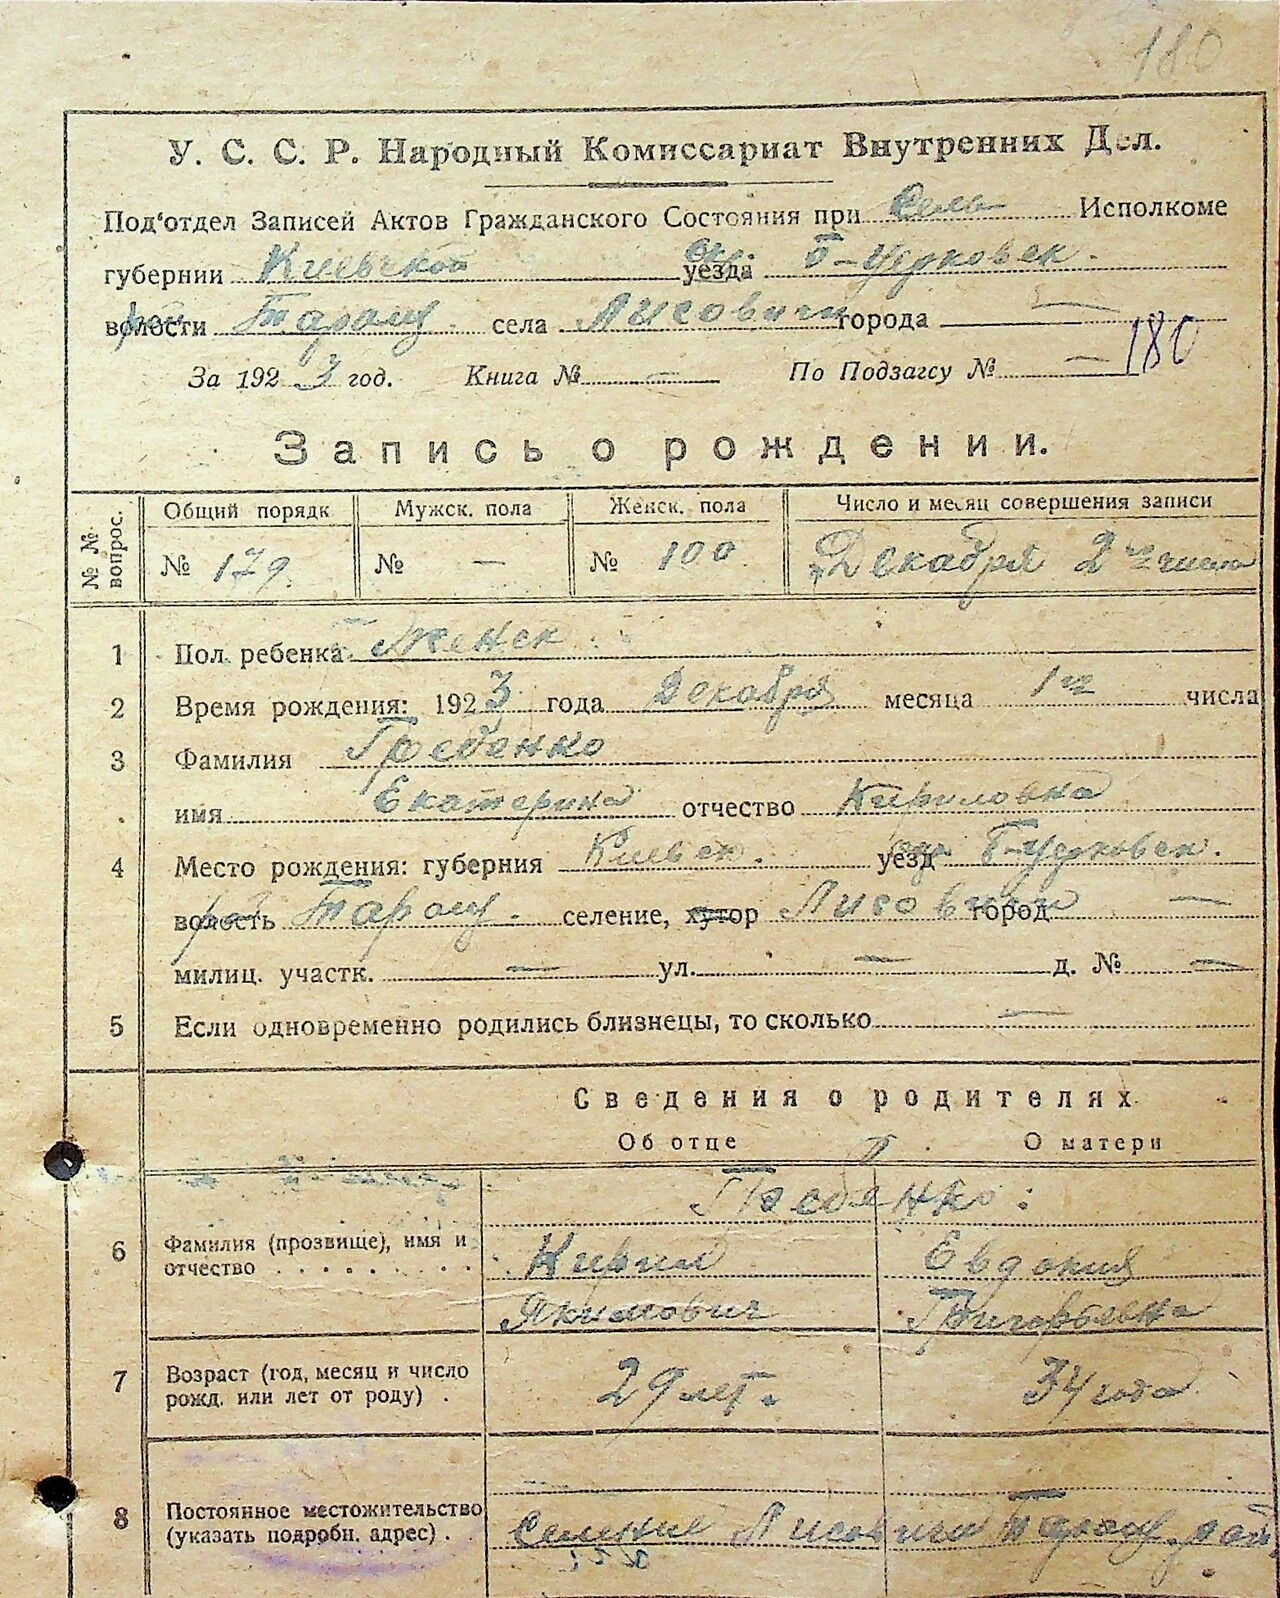 180
У. С. С. Р. Народный Комиссариат Внутренних Дел.
Под'отдел Записей Актов Гражданского Состояния при Сель Исполкоме
губернии Киевской уезда Окр. Б-Церковск.
волости рай Таращ. села Лисовичи города —
За 1923 год. Книга № — По Подзагсу № — 180
Запись о рождении.
№ № вопрос. Общий порядк Мужск. пола Женск. пола Число и месяц совершения записи
№ 179 № — № 100 Декабря 2го числа
1 Пол ребенка Женск
2 Время рождения: 1923 года Декабря месяца 1го числа
3 Фамилия Гребенко
имя Екатерина отчество Кириловна
4 Место рождения: губерния Киевск. уезд окр Б-Церковск.
волость рай Таращ. селение, хутор Лисовичи город —
милиц. участк. — ул. — д. № —
5 Если одновременно родились близнецы, то сколько —
Сведения о родителях
Об отце О матери
Гребенко
6 Фамилия (прозвище), имя и Кирил Евдокия
отчество . . . . . . . . Якимович Григорьевна
7 Возраст (год, месяц и число 29 лет. 34 года
рожд. или лет от роду) .
8 Постоянное местожительство
(указать подробн. адрес) . селение Лисовичи Таращ. рай